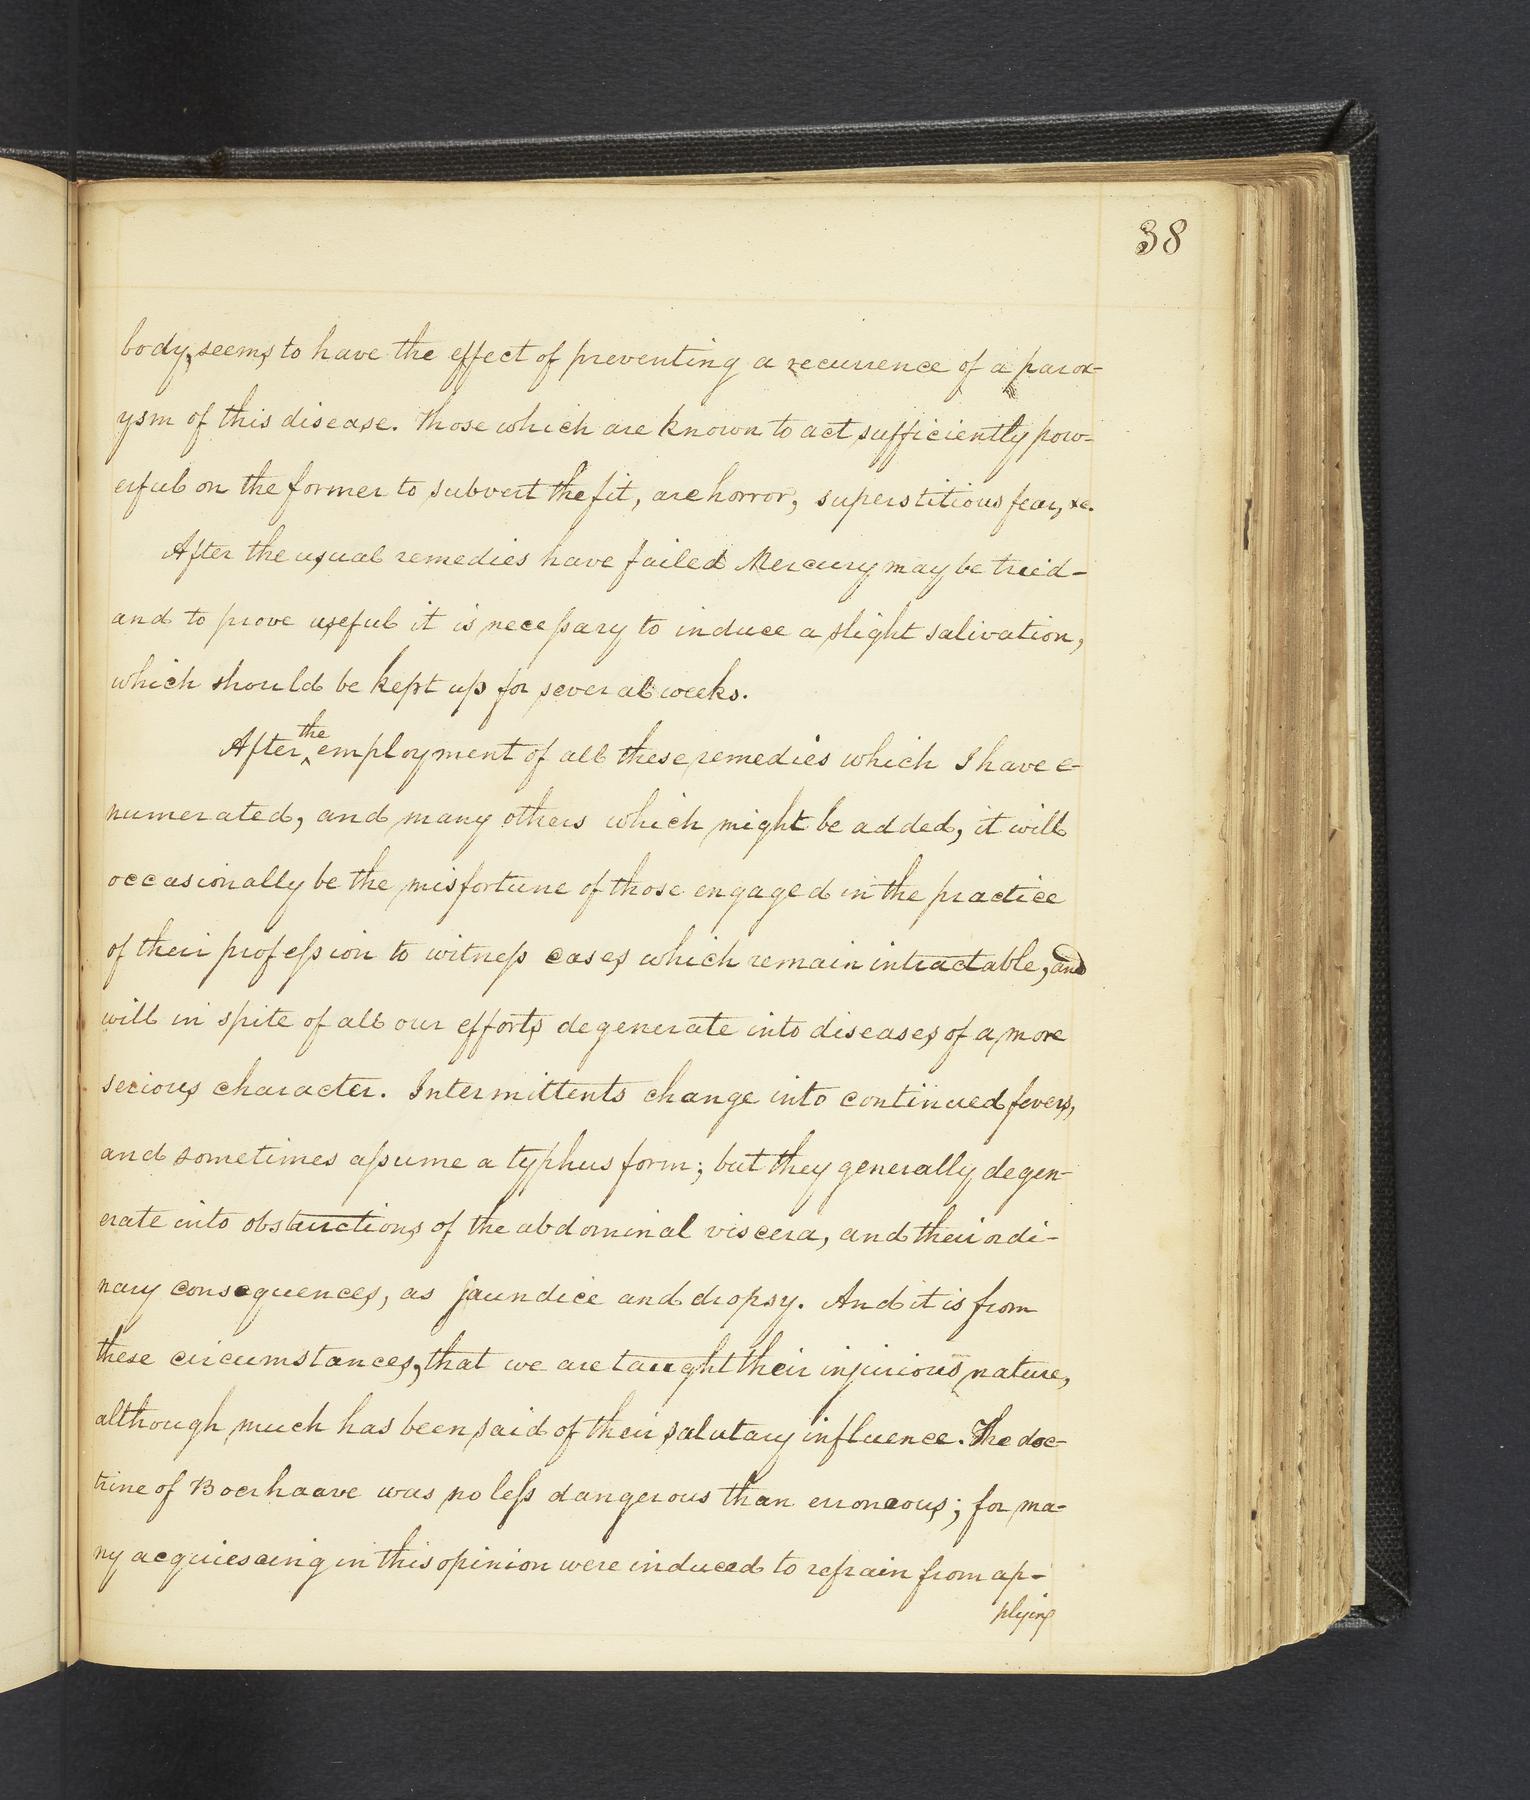 38
body, seems to have the effect of preventing a recurrence of a parox-
ysm of this disease. Those which are known to act sufficiently pow-
erful on the former to subvert the fit, are horror, superstitious fear, &c.
After the usual remedies have failed Mercury may be tried-
and to prove useful it is necessary to induce a slight salivation,
which should be kept up for several weeks.
After the employment of all these remedies which I have e-
numerated, and many others which might be added, it will
occasionally be the misfortune of those engaged in the practice
of their profession to witness cases which remain intractable, and
will in spite of all our efforts degenerate into diseases of a more
serious character. Intermittents change into continued fevers,
and sometimes assume a typhus form; but they generally degen-
erate into obstructions of the abdominal viscera, and their ordi-
nary consequences, as jaundice and dropsy. And it is from
these circumstances, that we are taught their injurious nature,
although much has been said of their salutary influence. The doc-
trine of Boerhaave was no less dangerous than erroneous; for ma-
ny acquiescing in this opinion were induced to refrain from ap-
plying